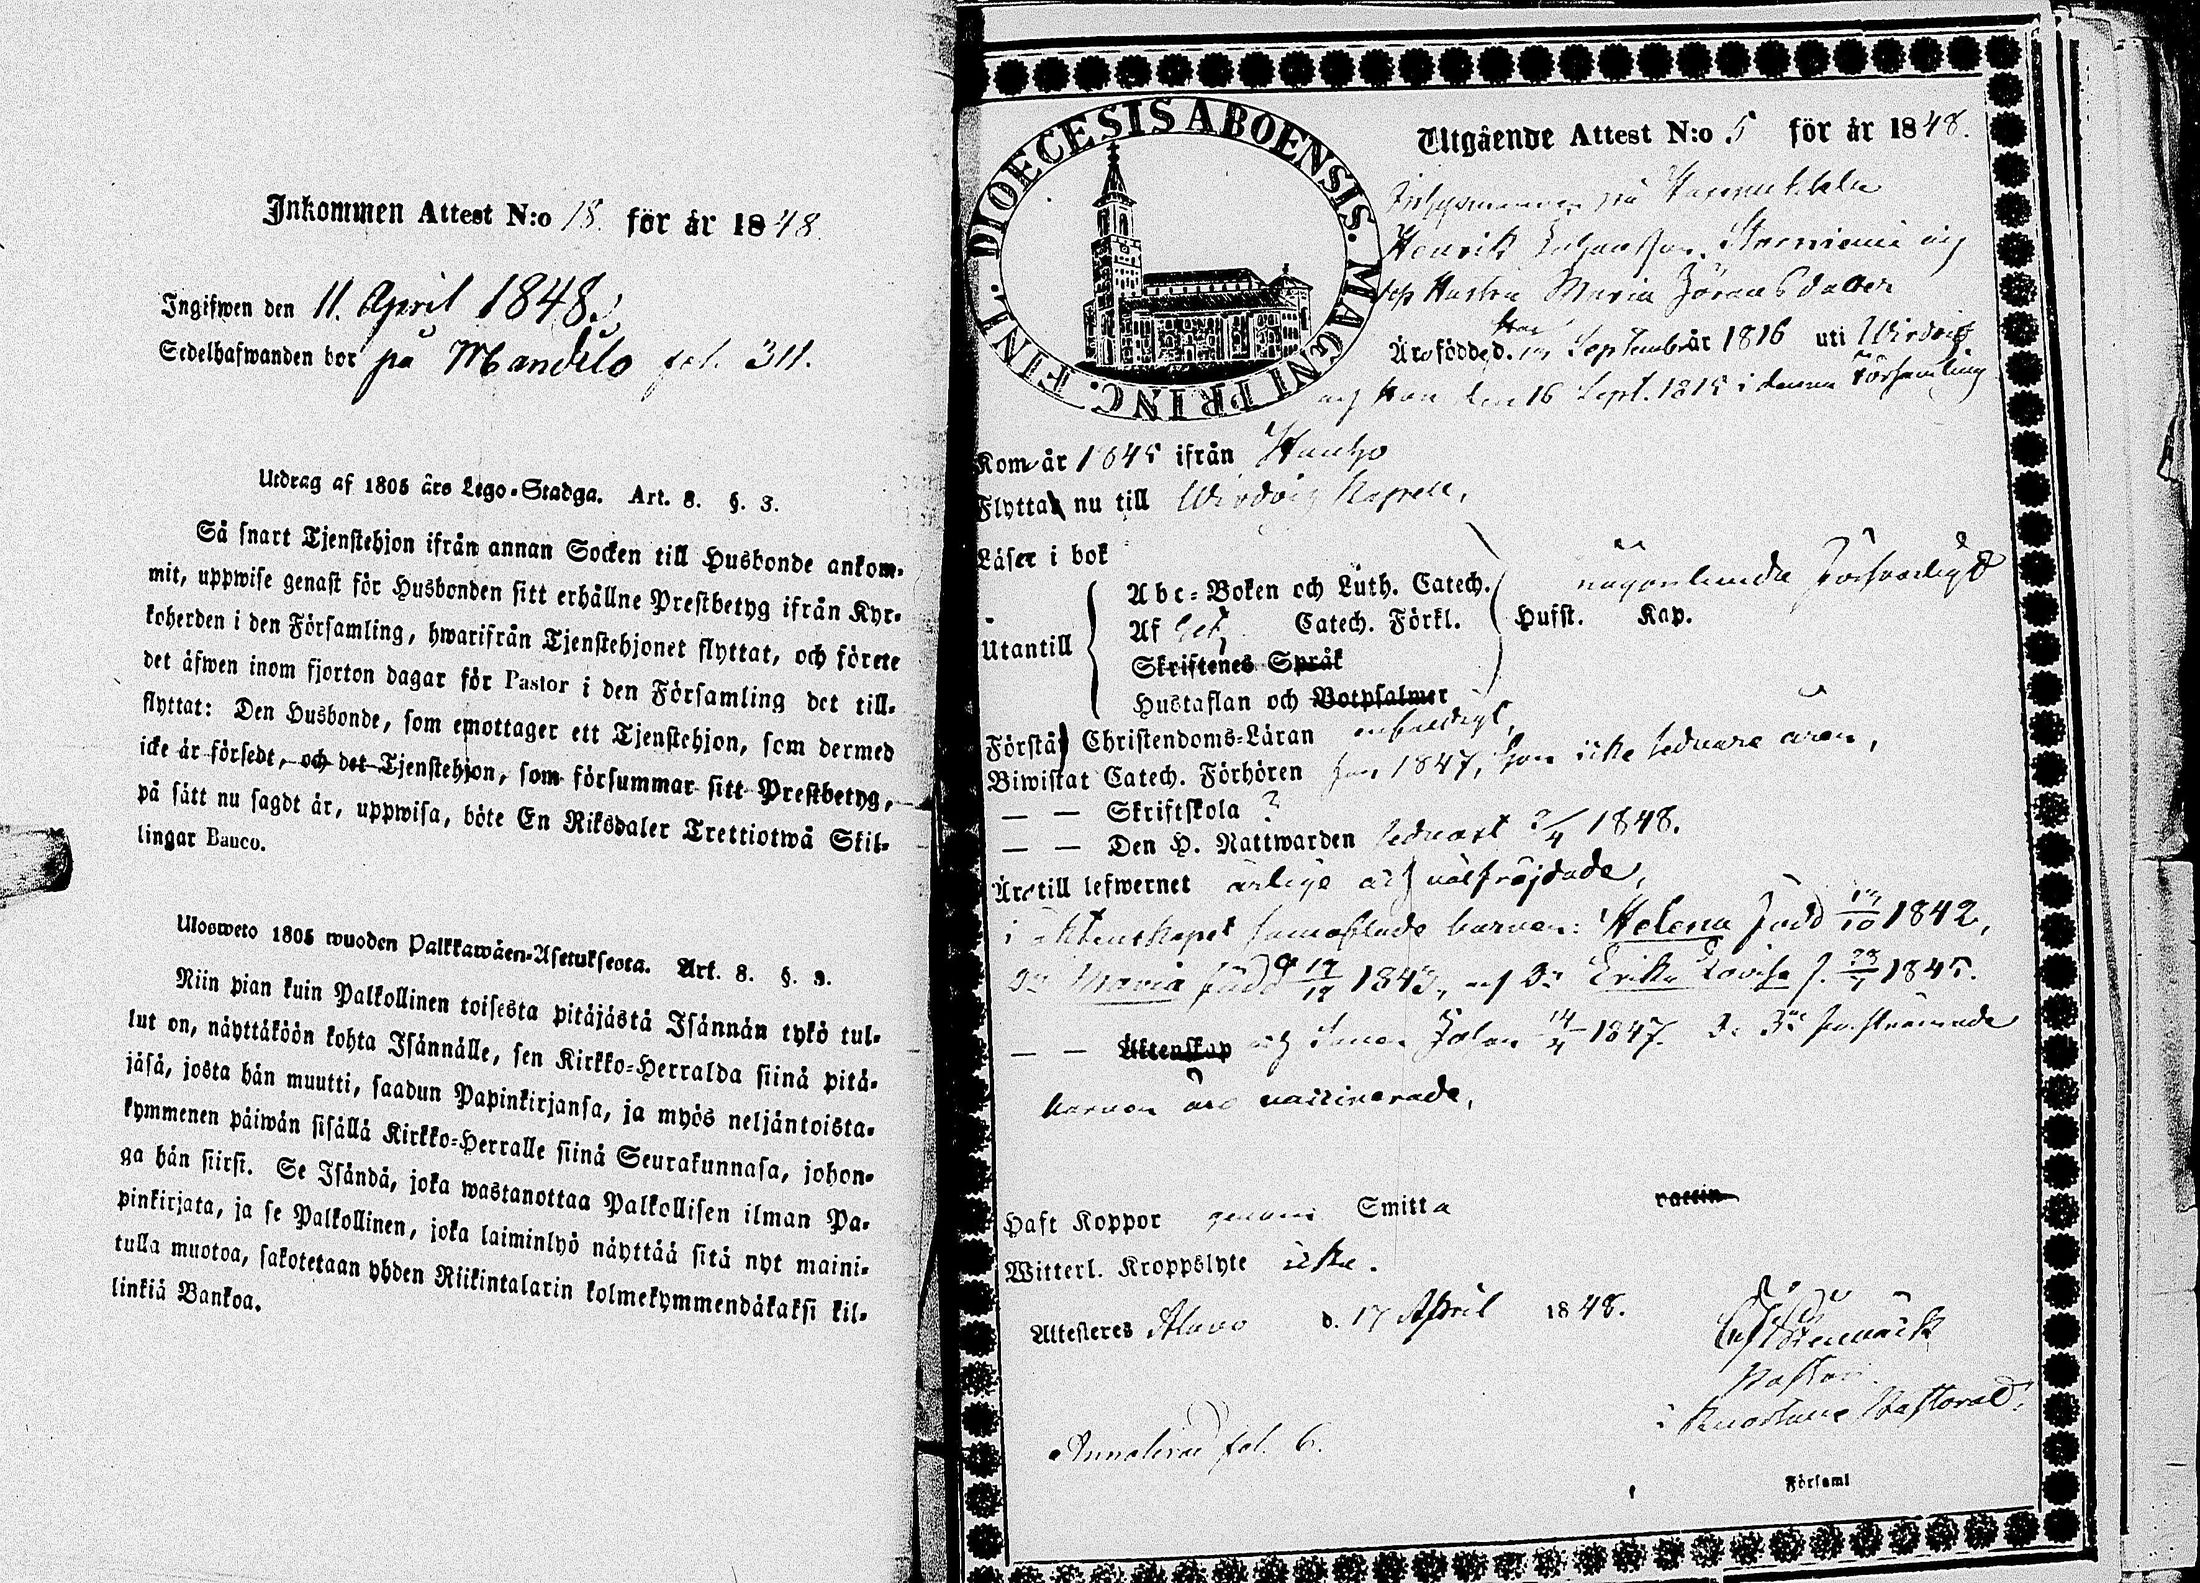 Inkommen Attest N:o 18. för år 1848.
Ingifwen den 11. April 1848.
Sedelhafwanden bor på Mandelo fol. 311.
Utdrag af 1805 års Lego-Stadga. Art. 8. §. 3.
Så snart Tjenstehjon ifrån annan Socken till Husbonde ankom-
mit, uppwise genast för Husbonden sitt erhållne Prestbetyg ifrån Kyr-
koherden i den Församling, hwarifrån Tjenstehjonet flyttat, och förete
det äfwen inom fjorton dagar för Pastor i den Församling det till-
flyttat: Den Husbonde, som emottager ett Tjenstehjon, som dermed
icke är försedt, och det Tjenstehjon, som försummar sitt Prestbetyg,
på sätt nu sagdt är, uppwisa, böte En Riksdaler Trettiotwå Skil-
lingar Banco.
Ulosweto 1805 wuoden Palkkawäen-Asetuksesta. Art. 8. §. 3.
Niin pian kuin Palkollinen toisesta pitäjästä Isännän tykö tul-
lut on, näyttäköön kohta Isännälle, sen Kirkko-Herralda siinä pitä-
jäsä, josta hän muutti, saadun Papinkirjansa, ja myös neljäntoista-
kymmenen päiwän sisällä Kirkko-Herralle siinä Seurakunnasa, johon-
ga hän siirsi. Se Isändä, joka wastanottaa Palkollisen ilman Pa-
pinkirjata, ja se Palkollinen, joka laiminlyö näyttää sitä nyt maini-
tulla muotoa, sakotetaan yhden Riikintalarin kolmekymmendäkaksi kil-
linkiä Bankoa.
DIOECESIS ABOENSIS. MAGNI PRINC. FINL.
Utgående Attest N:o 5 för år 1848.
på
Henrik och
Hustru Maria Jöransdotter
Äro födde d. September år 1816 uti Wirdois
och hon den 16 Sept. 1815 i denna Församling
Kom år 1845 ifrån
Flyttat nu till Wirdois Kapell,
Läser i bok
Utantill
Abc-Boken och Luth. Catech. någorlunda försvarligt
Af Catech. Förkl. Hufst. Kap.
Skriftenes Språk
Hustaflan och Botpsalmer
Förstår Christendoms-Läran enfaldigt,
Biwistat Catech. Förhören han 1847, hon icke sednare åren,
— — Skriftskola ?
— — Den H. Nattwarden sednast 1848.
Äro till lefwernet ärlige och välfrejdade,
i äktenskapet sammanaflade barnen: Helena född 1842,
Maria född 1843, och Erika Lovisa f. 1845.
— — Äktenskap och Sonen Johan 1847.
barnen äro vaccinerade,
Haft Koppor genom Smitta vaccin
Witterl. Kroppslyte icke.
Attesteras Alavo d. 17 April 1848.
Pastor
i Kuortane Pastorat.
fol. 6.
Församl